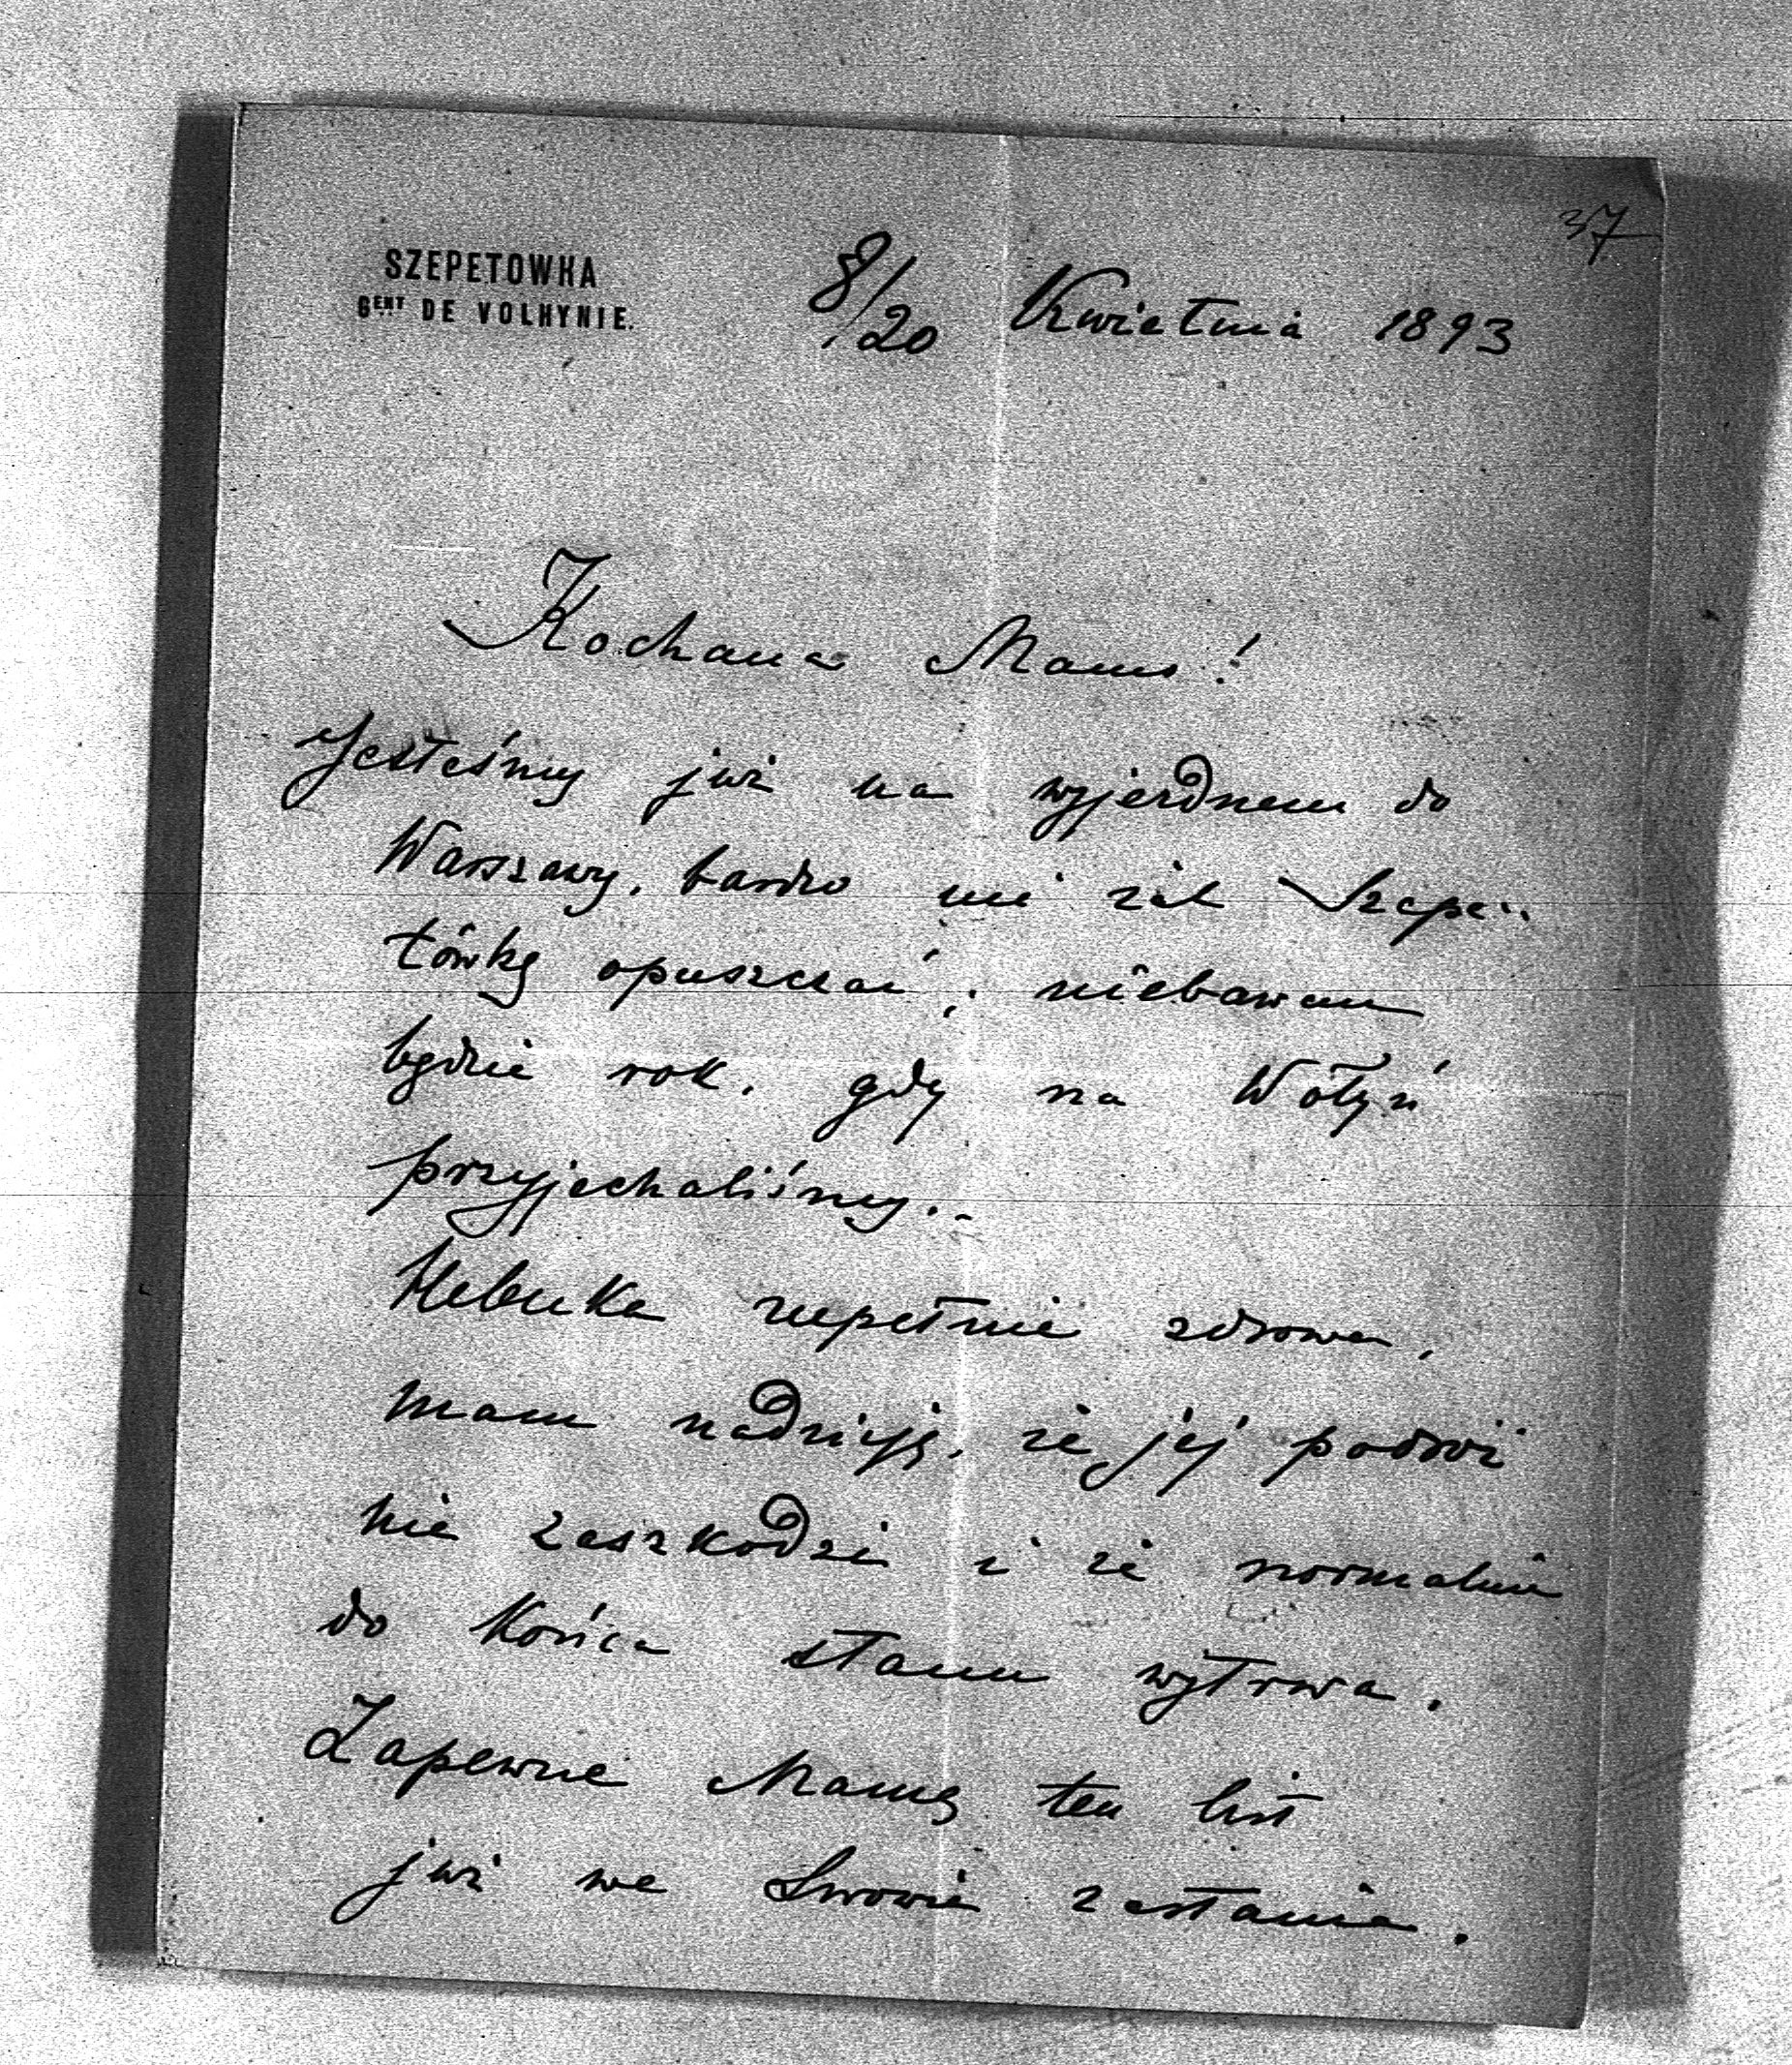 37
SZEPETOWKA
GENT DE VOLHYNIE.
8/20 Kwietnia 1893
Kochana Mamo!
Jesteśmy już na wyjezdnem do
Warszawy, bardzo mi żal Szepe-
tówkę opuszczać; niebawem
będzie rok, gdy na Wołyń
przyjechaliśmy.-
zupełnie zdrowa,
mam nadzieję, że jej podróż
nie zaszkodzi i że normalnie
do końca stanu wytrwa.
Zapewne Mamę ten list
już we Lwowie zastanie.